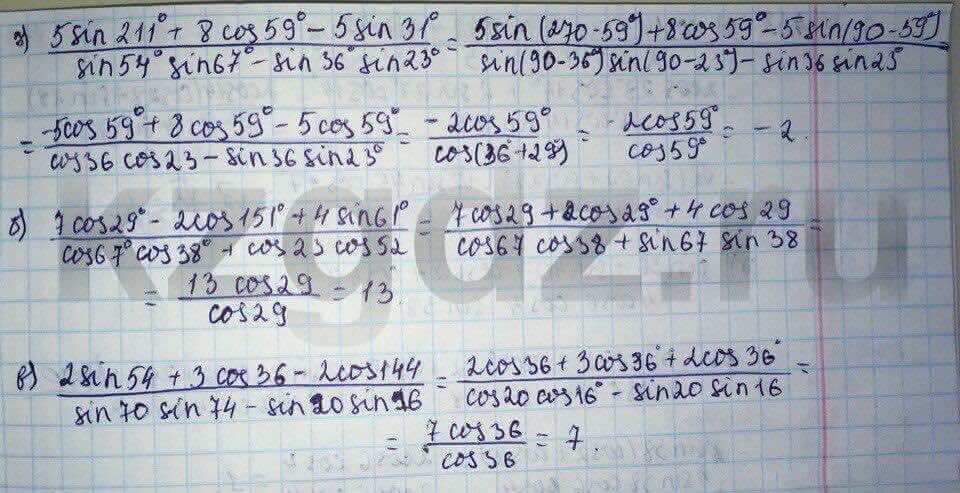 а) (5sin 211° + 8cos 59° - 5sin 31°)/(sin 54° sin 67° - sin 36° sin 23°) = (5sin(270-59°) + 8cos 59° - 5sin(90-59°))/(sin(90-36°) sin(90-23°) - sin 36 sin 23°)
= (-5cos 59° + 8cos 59° - 5cos 59°)/(cos 36 cos 23 - sin 36 sin 23°) = (-2cos 59°)/(cos(36°+23)) = (-2cos 59°)/(cos 59°) = -2.
б) (7cos 29° - 2cos 151° + 4sin 61°)/(cos 67° cos 38° + cos 23 cos 52) = (7cos 29 + 2cos 29° + 4cos 29)/(cos 67 cos 38 + sin 67 sin 38) =
= (13 cos 29)/(cos 29) = 13.
в) (2sin 54 + 3cos 36 - 2cos 144)/(sin 70 sin 74 - sin 20 sin 16) = (2cos 36 + 3cos 36° + 2cos 36°)/(cos 20 cos 16° - sin 20 sin 16) =
= (7cos 36)/(cos 36) = 7.
kzgdz.ru